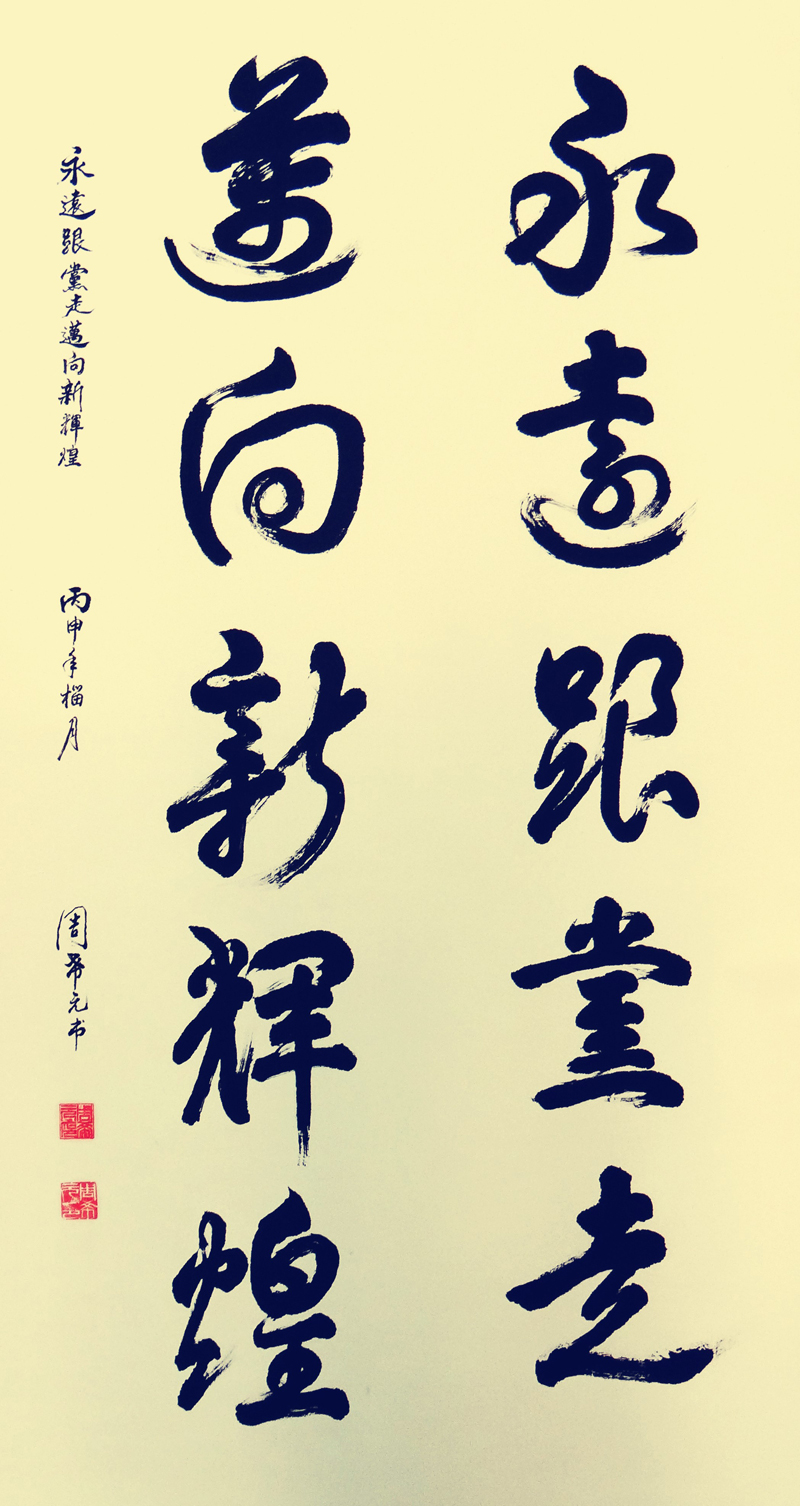 永遠跟黨走
邁向新輝煌
永遠跟黨走邁向新輝煌
丙申年榴月
周希元书